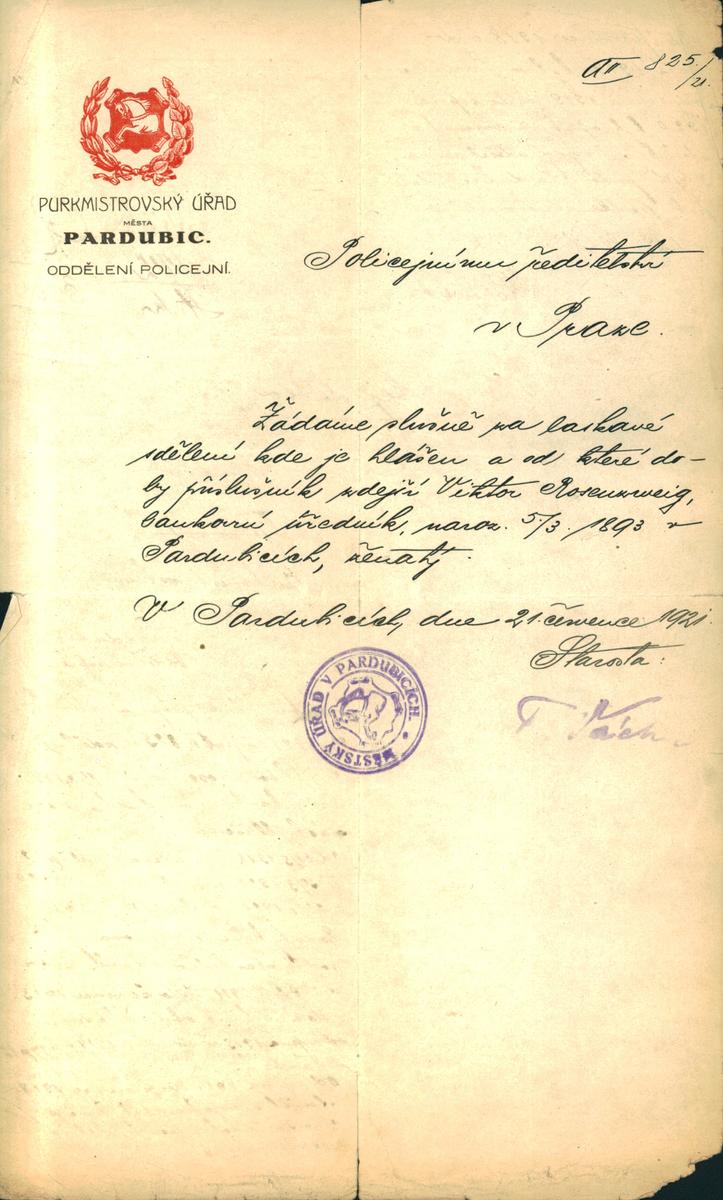 825/21.
PURKMISTROVSKÝ ÚŘAD
MĚSTA
PARDUBIC.
ODDĚLENÍ POLICEJNÍ.
Policejnímu ředitelství
v Praze.
Žádáme slušně za laskavé
sdělení kde je hlášen a od které do-
by příslušník zdejší Viktor Rosenzweig,
bankovní úředník, naroz. 5/3. 1893 v
Pardubicích, ženatý.
V Pardubicích, dne 21. července 1921.
Starosta:
MĚSTSKÝ ÚŘAD V PARDUBICÍCH.